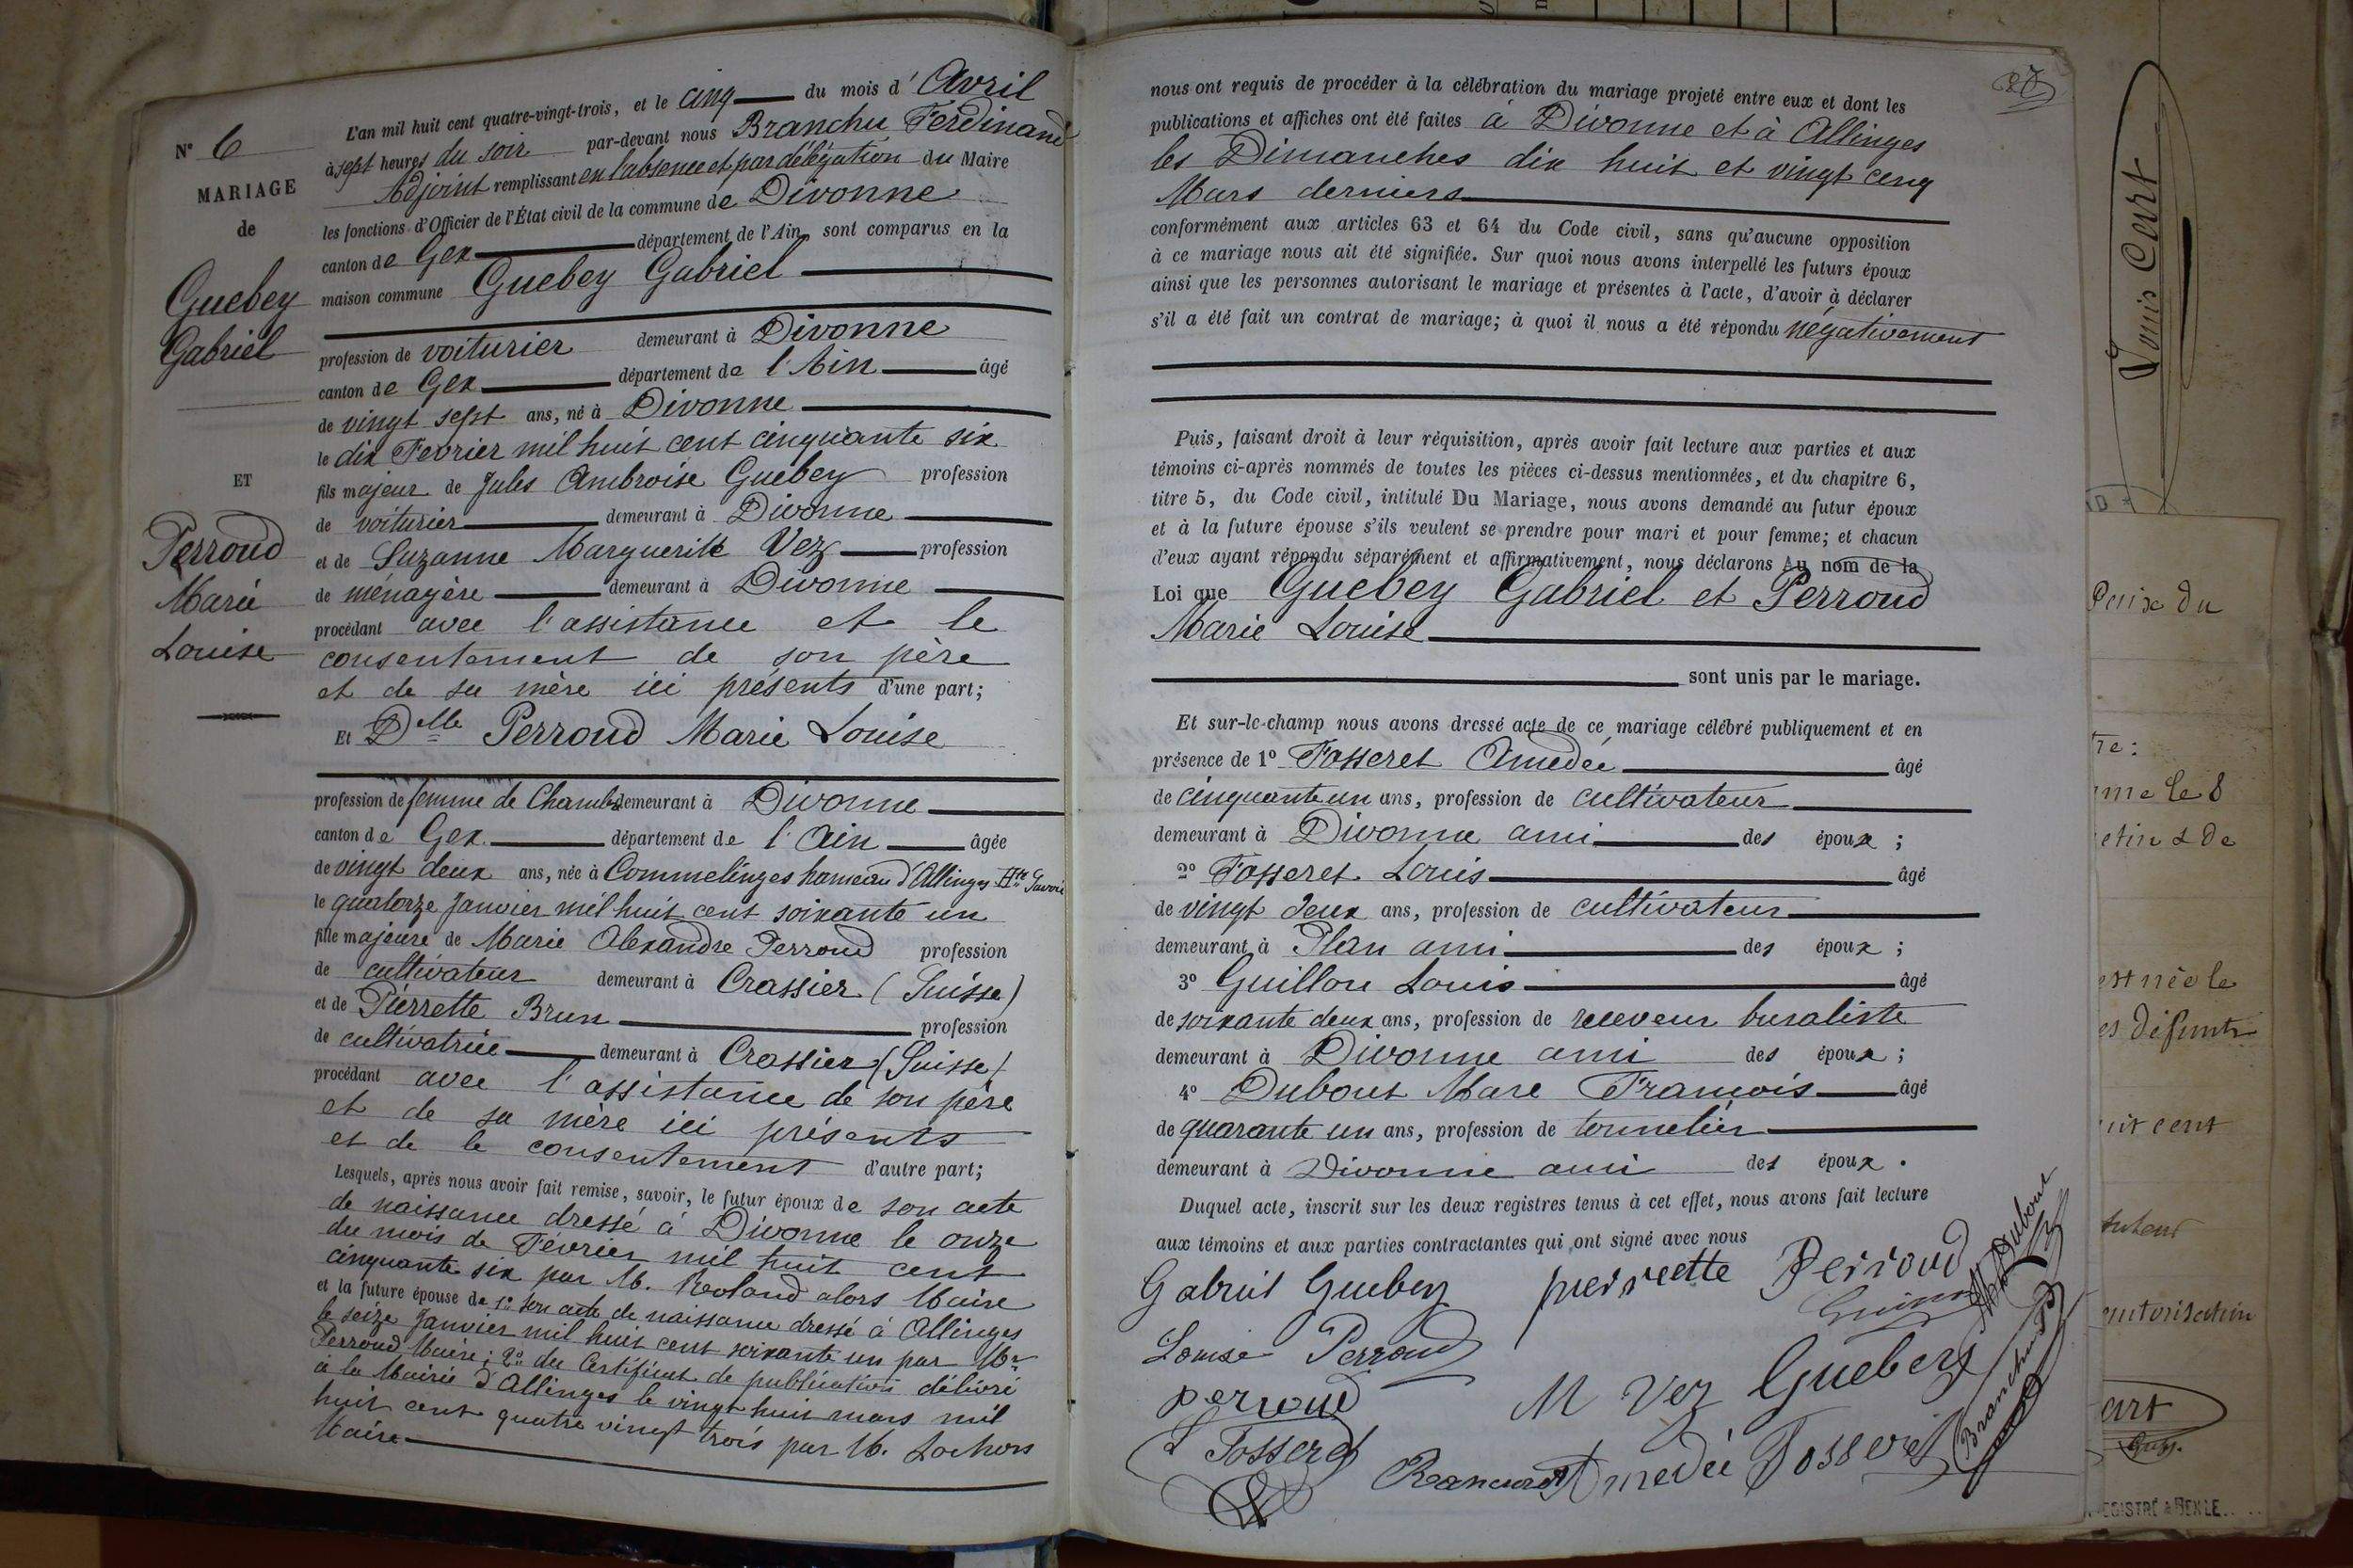 N° 6
MARIAGE
de
Guebey
Gabriel
ET
Perroud
Marie
Louise
L'an mil huit cent quatre-vingt-trois, et le cinq du mois d'Avril
à sept heures du soir par-devant nous Branchu Ferdinand
Adjoint remplissant en l'absence et par délégation du Maire
les fonctions d'Officier de l'État civil de la commune de Divonne
canton de Gex département de l'Ain sont comparus en la
maison commune Guebey Gabriel
profession de voiturier demeurant à Divonne
canton de Gex département de l'Ain âgé
de vingt sept ans, né à Divonne
le dix Fevrier mil huit cent cinquante six
fils majeur de Jules Ambroise Guebey profession
de voiturier demeurant à Divonne
et de Suzanne Marguerite Vez profession
de ménagère demeurant à Divonne
procédant avec l'assistance et le
consentement de son père
et de sa mère ici présents d'une part;
Et Delle Perroud Marie Louise
profession de femme de Chambre demeurant à Divonne
canton de Gex département de l'Ain âgée
de vingt deux ans, née à Commelinges hameau d'Allinges Hte Savoie
le quatorze Janvier mil huit cent soixante un
fille majeure de Marie Alexandre Perroud profession
de cultivateur demeurant à Crassier (Suisse)
et de Pierrette Brun profession
de cultivatrice demeurant à Crassier (Suisse)
procédant avec l'assistance de son père
et de sa mère ici présents
et de le consentement d'autre part;
Lesquels, après nous avoir fait remise, savoir, le futur époux de son acte
de naissance dressé à Divonne le onze
du mois de Février mil huit cent
cinquante six par M. Roland alors Maire
et la future épouse de 1° son acte de naissance dressé à Allinges
le seize Janvier mil huit cent soixante un par Mr
Perroud Maire; 2° du Certificat de publication délivré
à la Mairie d'Allinges le vingt huit mars mil
huit cent quatre vingt trois par M.
Maire
27
nous ont requis de procéder à la célébration du mariage projeté entre eux et dont les
publications et affiches ont été faites à Divonne et à Allinges
les Dimanches dix huit et vingt cinq
Mars derniers
conformément aux articles 63 et 64 du Code civil, sans qu'aucune opposition
à ce mariage nous ait été signifiée. Sur quoi nous avons interpellé les futurs époux
ainsi que les personnes autorisant le mariage et présentes à l'acte, d'avoir à déclarer
s'il a été fait un contrat de mariage; à quoi il nous a été répondu négativement
Puis, faisant droit à leur réquisition, après avoir fait lecture aux parties et aux
témoins ci-après nommés de toutes les pièces ci-dessus mentionnées, et du chapitre 6,
titre 5, du Code civil, intitulé Du Mariage, nous avons demandé au futur époux
et à la future épouse s'ils veulent se prendre pour mari et pour femme; et chacun
d'eux ayant répondu séparément et affirmativement, nous déclarons Au nom de la
Loi que Guebey Gabriel et Perroud
Marie Louise
sont unis par le mariage.
Et sur-le-champ nous avons dressé acte de ce mariage célébré publiquement et en
présence de 1° Fosseret Amedée âgé
de cinquante un ans, profession de cultivateur
demeurant à Divonne ami des époux;
2° Fosseret Louis âgé
de vingt deux ans, profession de cultivateur
demeurant à Plan ami des époux;
3° Guillon Louis âgé
de soixante deux ans, profession de receveur buraliste
demeurant à Divonne ami des époux;
4° Dubout Marc François âgé
de quarante un ans, profession de tonnelier
demeurant à Divonne ami des époux.
Duquel acte, inscrit sur les deux registres tenus à cet effet, nous avons fait lecture
aux témoins et aux parties contractantes qui ont signé avec nous
Gabriel Guebey pierrette Perroud Dubout
Louise Perroud
perroud M Vez Guebey Branchu
L Fosseret Amedée Fosseret
Louis Curt
Paix du
me le 8
est née le
es défunts
uit cent
autorisation